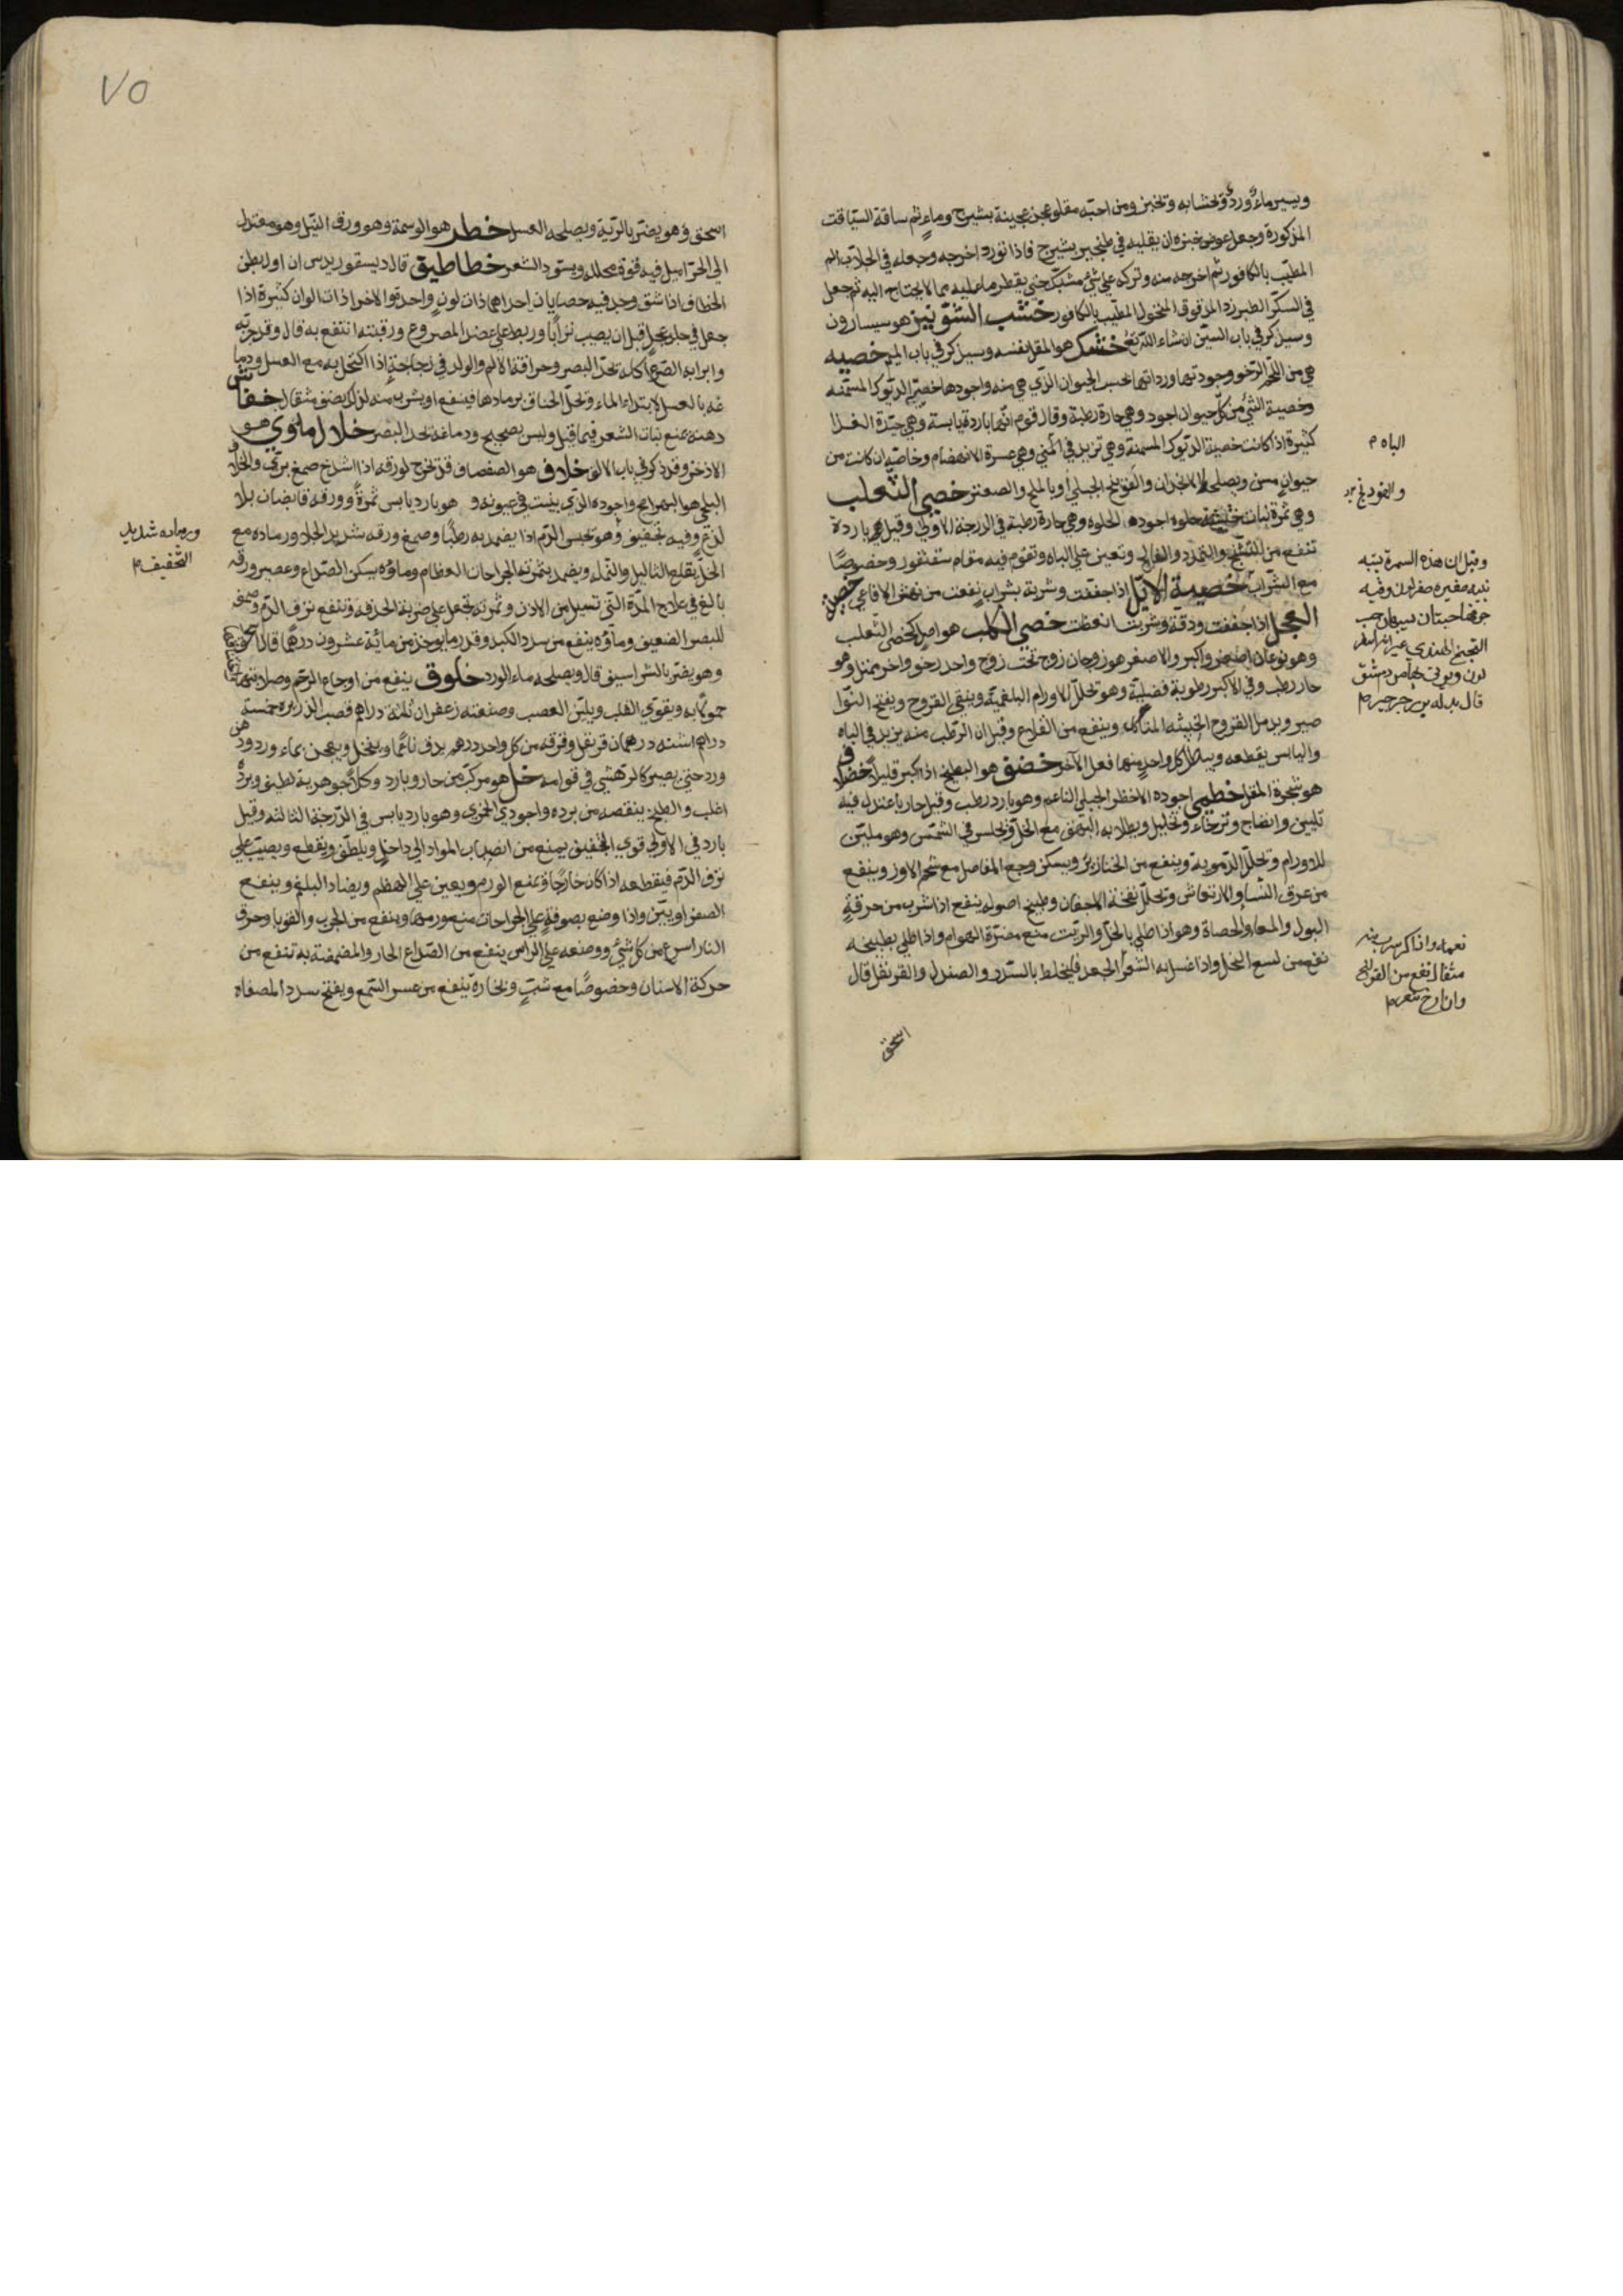 ويسير ماء ورد وتخبز ومن احبه مقلو عجن عجينة بشيرج وماء ثم ساقه السياقة
المذكورة وجعل عوض خبزه ان يقليه في طنجير بشيرج فاذا تورد اخرجه وجعله في الجلاب
المطيب بالكافور ثم اخرجه منه وتركه على شئ مشبك حتى يقطر ما عليه مما لا يحتاج اليه ثم جعل
في السكر الطبرزد المدقوق المنخول المطيب بالكافور خشب الشونيز هو سيسارون
وسيذكر في باب السين ان شاء الله تع خشك هو المقل نفسه وسيذكر في باب الميم خصيه
هي من اللحم الرخو وجودتها ورداتها بحسب الحيوان الذي هي منه واجودها خصي الديوك المسمنه
وخصية الشئ من كل حيوان اجود وهي حارة رطبة وقال قوم انها باردة يابسة وهي جيدة الغذا
كثيرة اذا كانت خصية الديوك المسمنة وهي تزيد في المني وهي عسرة الانهضام وخاصة ان كانت من
الباه
حيوان مسن ويصلحها الانجدان والفوتنج الجبلي او بالملح والصعتر خصي الثعلب
والفودنج
وهي ثمرة نبات حلوه اجودها الحلوه وهي حارة رطبة في الدرجة الاولى وقيل هي باردة
تنفع من التشنج والتمدد والفالج وتعين على الباه وتقوم فيه مقام سقنقور وخصوصا
مع الشراب خصية الايل اذا جففت وشربة بشراب نفعت من نهش الافاعي خصية
العجل اذا جففت ودقة وشربت انعظت خصي الكلب هو اصل كخصي الثعلب
وهو نوعان اصغر واكبر والاصغر هو زوجان زوج تحت زوج واحد رخو واخر ممتلئ وهو
حار رطب وفي الاكبر رطوبة فضلية وهو تحلل الاورام البلغمية وينقي القروح ويفتح النوا
صير ويدمل القروح الخبيثه المتاكله وينفع من القلاع وقيل ان الرطب منه يزيد في الباه
واليابس يقطعه ويبطل كل واحد منهما فعل الآخر خضف هو البطيخ اذا كبر قليلا خضلاف
هو شجرة المقل خطمي اجوده الاخضر الجبلي الناعم وهو بارد رطب وقيل حار باعتدال فيه
تليين وانضاج وترخاء وتحليل ويطلا به البهق مع الخل ويجلس في الشمس وهو ملين
للاورام وتحلل الدموية وينفع من الخنازير ويسكن وجع المفاصل مع شحم الاوز وينفع
من عرق النسا والارتعاش وتحلل نفخة الاجفان وطبيخ اصوله ينفع اذا شرب من حرقة
البول والمعا والحصاة وهو اذا طلي بالخل والزيت منع مضرة الهوام واذا طلي بطبيخه
نفع من لسع النحل واذا غسل به الشعر الجعد فليخلط بالسدر والصندل والقرنفل قال
وقيل ان هذه السمرة
جوفها حبتان
قال بدله بزر جرجير
مثقال نفع من القولنج
اسحق
٧٥
اسحق وهو يضر بالرية ويصلحه العسل خطر هو الوسمة وهو ورق النيل وهو معتدل
الى الحر اميل فيه قوة محللة ويسود الشعر خطاطيف قال ديسقوريدس ان اول بطن
الخطاف اذا شق وجد فيه حصاتان احداهما ذات لون واحد والاخرا ذات الوان كثيرة اذا
جعل في جلد عجل قبل ان يصيب ترابا وربط على عضد المصروع ورقبته انتفع به قال وقد جربه
وابرا به الصرع اكله تحد البصر وحراقة الام والولد في زجاجة اذا اكتحل به مع العسل ودما
غه بالعسل لابتداء الماء وتحل الخناق برمادها فينفع او يشرب منه لذلك نصف مثقال خفاش
دهنه يمنع نبات الشعر فيما قيل وليس بصحيح ودماغه تحد البصر خلال ماموني هو
الاذخر وقد ذكر في باب الالف خلاف هو الصفصاف وقد تخرج لورقه اذا اشدخ صمغ
البلخي هو البهرامج واجوده الذي ينبت في عيونه وهو بارد يابس ثمرة وورقه قابضان بلا
لذع وفيه تجفيف وهو تحبس الدم اذا يضمد به رطبا وصمغ ورقه شديد الجلا ورماده مع
ورماده شديد
التجفيف
الخل يقلع الثاليل والنمله ويضمد بثمرته الجراحات العظام وماؤه يسكن الصداع وعصير ورقه
بالغ في علاج المدة التي تسيل من الاذن وثمرته تجعل على ضربة الحدقه وتنفع نزف الدم وصمغه
للبصر الضعيف وماؤه ينفع من سدد الكبد وقدر ما يوخذ من مائه عشرون درهما قال اسحق
وهو يضر بالشراسيف قال ويصلحه ماء الورد خلوق ينفع من اوجاع الرحم وصلابتها
حمولا به ويقوي القلب ويلين العصب وصفعته زعفران ثلثة دراهم قصب الذريره خمسة
دراهم اشنه درهمان قرنفل وقرفه من كل واحد درهم يدق ناعما وينخل ويعجن بماء ورد ودهن
ورد حتى يصير كالرهشي في قوامه خل هو مركب من حار وبارد وكلا جوهريه لطيف وبرده
اغلب والطبخ ينقصه من برده واجودي الخمري وهو بارد يابس في الدرجة الثالثه وقيل
بارد في الاولى قوي التجفيف يمنع من انصباب المواد الى داخل ويلطف ويقطع ويصب على
نزف الدم فيقطعه اذا كان خارجا ويمنع الورم ويعين على الهظم ويضاد البلغم وينفع
الصفراويين واذا وضع بصوفة على الجراحات منع ورمها وينفع من الجرب والقوبا وحرق
النار اسرع من كل شئ ووضعه على الراس ينفع من الصداع الحار والمضمضة به تنفع من
حركة الاسنان وخصوصا مع شب وبخاره ينفع من عسر السمع ويفتح سدد المصفاه